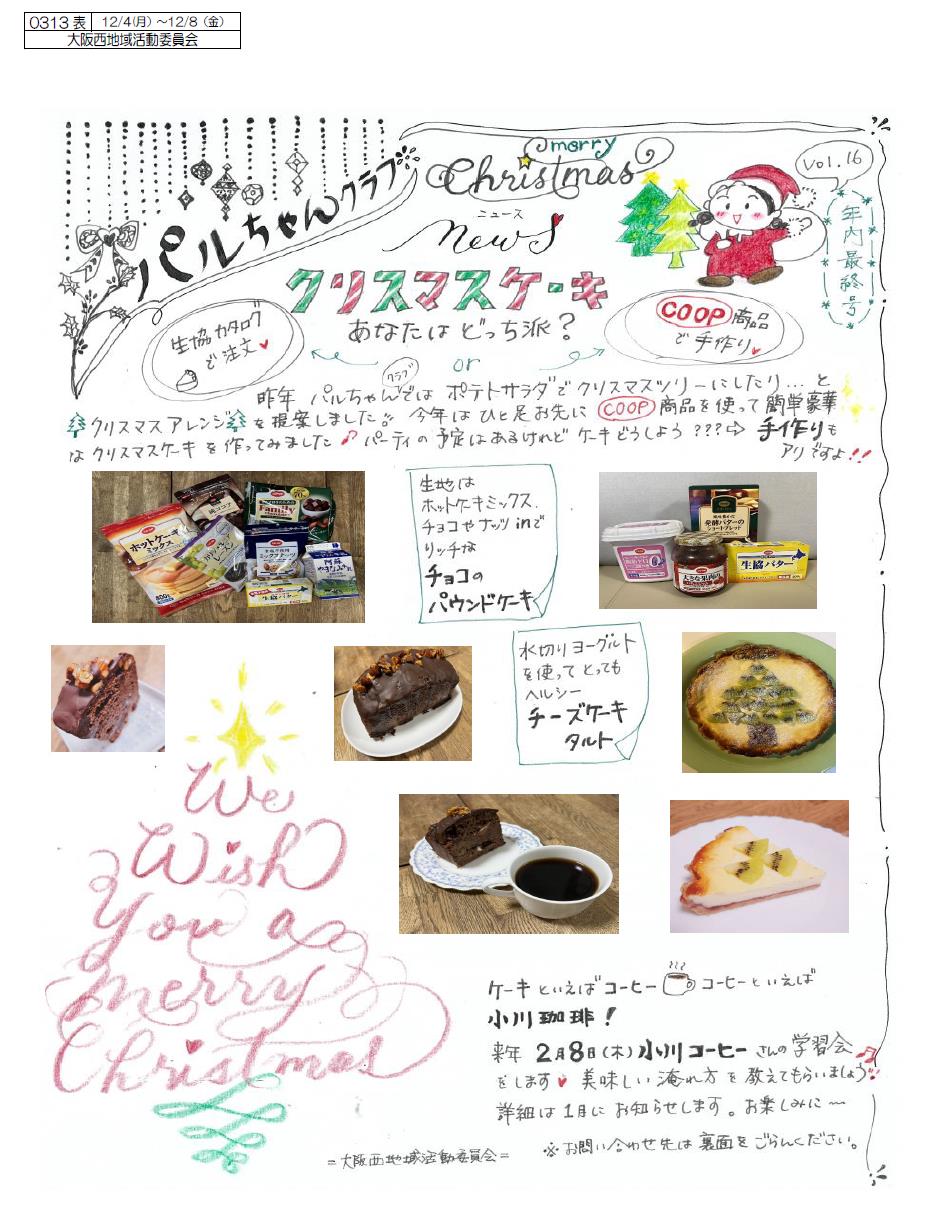 0313 表 12/4(月)～12/8(金)
大阪西地域活動委員会
パルちゃんクラブ
merry
Christmas
ニュース
NewS
vol.16
年内最終号
クリスマスケーキ
あなたは どっち派？
生協カタログ
で注文
or
COOP商品
で手作り
クラブ
昨年 パルちゃんでは ポテトサラダで クリスマスツリーにしたり…と
クリスマスアレンジを提案しました!! 今年はひと足お先に COOP 商品を使って 簡単豪華
なクリスマスケーキを作ってみました♪ パーティの予定はあるけれどケーキどうしよう???⇨ 手作りも
アリですよ!!
生地は
ホットケーキミックス、
チョコやナッツ inで
リッチな
チョコの
パウンドケーキ
ホットケーキ
ミックス
純ココア
Family
ミックスナッツ
生協バター
発酵バターの
ショートブレッド
大きな果肉の
生協バター
水切りヨーグルト
を使って とっても
ヘルシー
チーズケーキ
タルト
We
Wish
You a
merry
Christmas
ケーキといえばコーヒー コーヒーといえば
小川珈琲！
来年 2月8日(木) 小川コーヒーさんの学習会
をします♥ 美味しい淹れ方を教えてもらいましょう!!
詳細は1月にお知らせします。お楽しみに〜
※お問い合わせ先は裏面をごらんください。
=大阪西地域活動委員会=